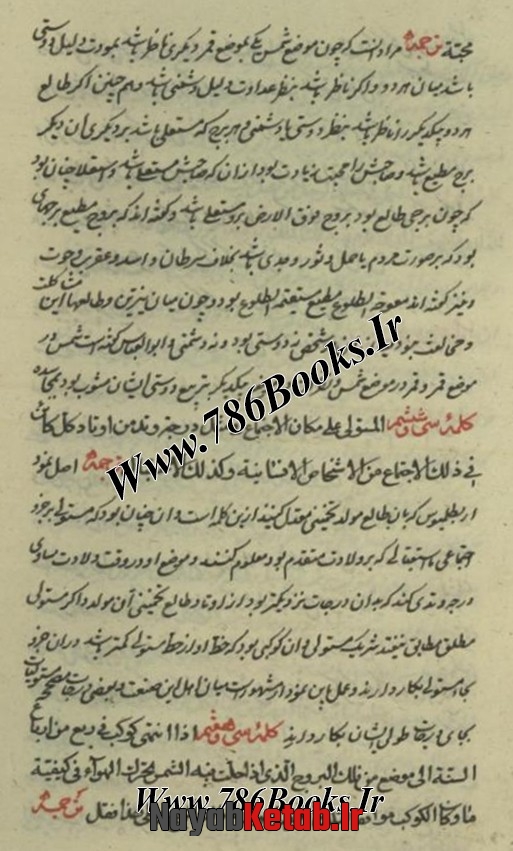 محبّة ترجمه مراد آنست که چون موضع شمس یکی بموضع قمر دیگری ناظر باشد بمودت دلیل دوستی
باشد میان هر دو و اگر ناظر باشد بنظر عداوت دلیل دشمنی باشد و هم چنین اگر طالع
هر دو بیکدیگر ناظر باشد بنظر دوستی یا دشمنی و هر برج که مستعلی باشد بر دیگری آن دیگر
برج مطیع باشد و صاحبش را محبت زیادت بود از آن که صاحبش مستعلی باشد و استعلا چنان بود
که چون برجی طالع بود بروج فوق الارض برو مستعلی باشد و گفته اند که بروج مطیع برجهای
بود که بر صورت مردم یا حمل و ثور و جدی باشد بخلاف سرطان و اسد و عقرب و حوت
و نیز گفته اند معوجة الطلوع مطیع مستقیمة الطلوع بود و چون میان نیرین و طالعها این مشاکلت
و مخالفت نبود شخص نه دوستی بود و نه دشمنی و ابوالعباس گفته است شمس در
موضع قمر و قمر در موضع شمس بتربیع دوستی ایشان منسوب بود
کلمهٔ سی و ششم المستولی علی مکان الاجتماع
فی ذلک الاجتماع من الاشخاص الانسانیة و کذلک ترجمه اصل نمودار
بطلیموس که بآن طالع مولد تخمینی معدل کنند ازین کلمه است و آن چنان بود که مستولی بر جزو
اجتماعی یا استقبالی که بر ولادت متقدم بود معلوم کنند و موضع او در وقت ولادت مساوی
درجه وتدی کند که بدان درجات نزدیکتر بود از اوتاد طالع تخمینی آن مولد و اگر مستولی
مطلق مطابق نیفتد شریک مستولی و آن کوکبی بود که حظ او از حظ مستولی کمتر باشد در آن جزو
بجای مستولی بکار دارند و عمل باین نمودار مشهور است میان اهل این صنعت و بعضی
بجای درجات طول ایشان بکار دارند کلمهٔ سی و هفتم اذا انتهی کوکب فی ربع من ارباع
السنة الی موضع من فلک البروج الذی اذا حلت فیه الشمس تحرک الهواء فی کیفیة
ما و کان الکوکب ترجمه
Www.786Books.Ir
Www.786Books.Ir
NayabKetab.Ir